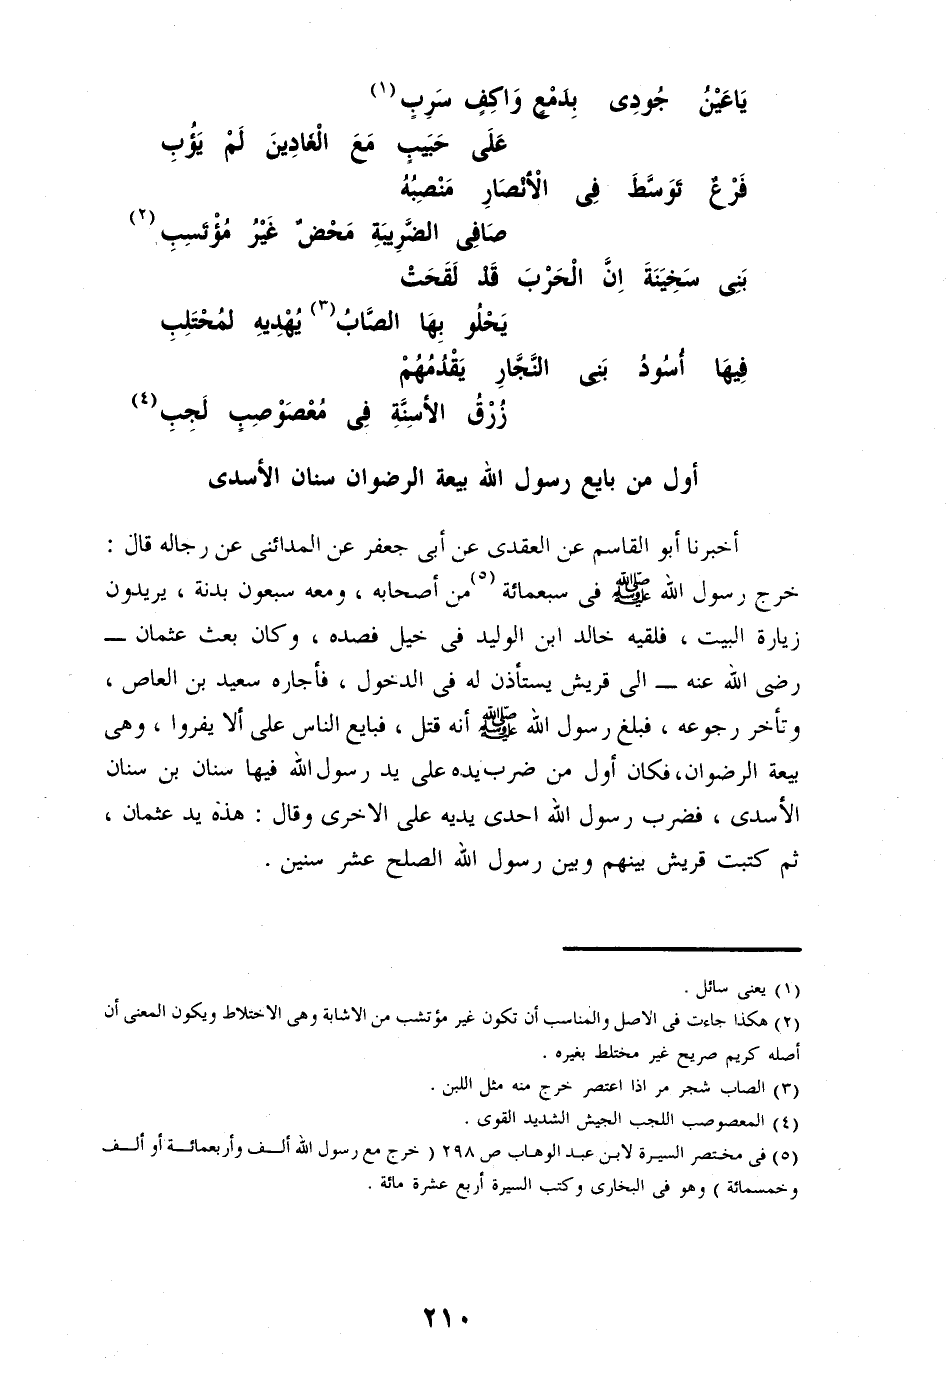 يَاعَيْنُ جُودِى بِدَمْعٍ وَاكِفٍ سَرِبٍ (١)
عَلَى حَبَيبٍ مَعَ الْغَادِينَ لَمْ يَؤُبِ
فَرْعٌ تَوَسَّطَ فِى الْأَنْصَارِ مَنْصِبُهُ
صَافِى الضَّرِيبَةِ مَحْضٌ غَيْرُ مُؤْتَسِبِ (٢)
بَنِى سَخِيَنَةَ اِنَّ الْحَرْبَ قَدْ لَقَحَتْ
يَحْلُو بِهَا الصَّابُ (٣) يُهْدِيهِ لمُحْتَلِبِ
فِيهَا أُسُودُ بَنِى النَّجَّارِ يَقْدُمُهُمْ
زُرْقُ الأسِنَّةِ فِى مُعْصَوْصِبٍ لَجِبِ (٤)
أول من بايع رسول الله بيعة الرضوان سنان الأسدى
أخبرنا أبو القاسم عن العقدى عن أبى جعفر عن المدائنى عن رجاله قال :
خرج رسول الله ﷺ فى سبعمائة (٥) من أصحابه ، ومعه سبعون بدنة ، يريدون
زيارة البيت ، فلقيه خالد ابن الوليد فى خيل فصده ، وكان بعث عثمان —
رضى الله عنه — الى قريش يستأذن له فى الدخول ، فأجاره سعيد بن العاص ،
وتأخر رجوعه ، فبلغ رسول الله ﷺ أنه قتل ، فبايع الناس على ألا يفروا ، وهى
بيعة الرضوان، فكان أول من ضرب يده على يد رسول الله فيها سنان بن سنان
الأسدى ، فضرب رسول الله احدى يديه على الاخرى وقال : هذه يد عثمان ،
ثم كتبت قريش بينهم وبين رسول الله الصلح عشر سنين .
(١) يعنى سائل .
(٢) هكذا جاءت فى الاصل والمناسب أن تكون غير مؤتشب من الاشابة وهى الاختلاط ويكون المعنى أن
أصله كريم صريح غير مختلط بغيره .
(٣) الصاب شجر مر اذا اعتصر خرج منه مثل اللبن .
(٤) المعصوصب اللجب الجيش الشديد القوى .
(٥) فى مختصر السيرة لابن عبد الوهاب ص ٢٩٨ ( خرج مع رسول الله ألف وأربعمائة أو ألف
وخمسمائة ) وهو فى البخارى وكتب السيرة أربع عشرة مائة .
٢١٠